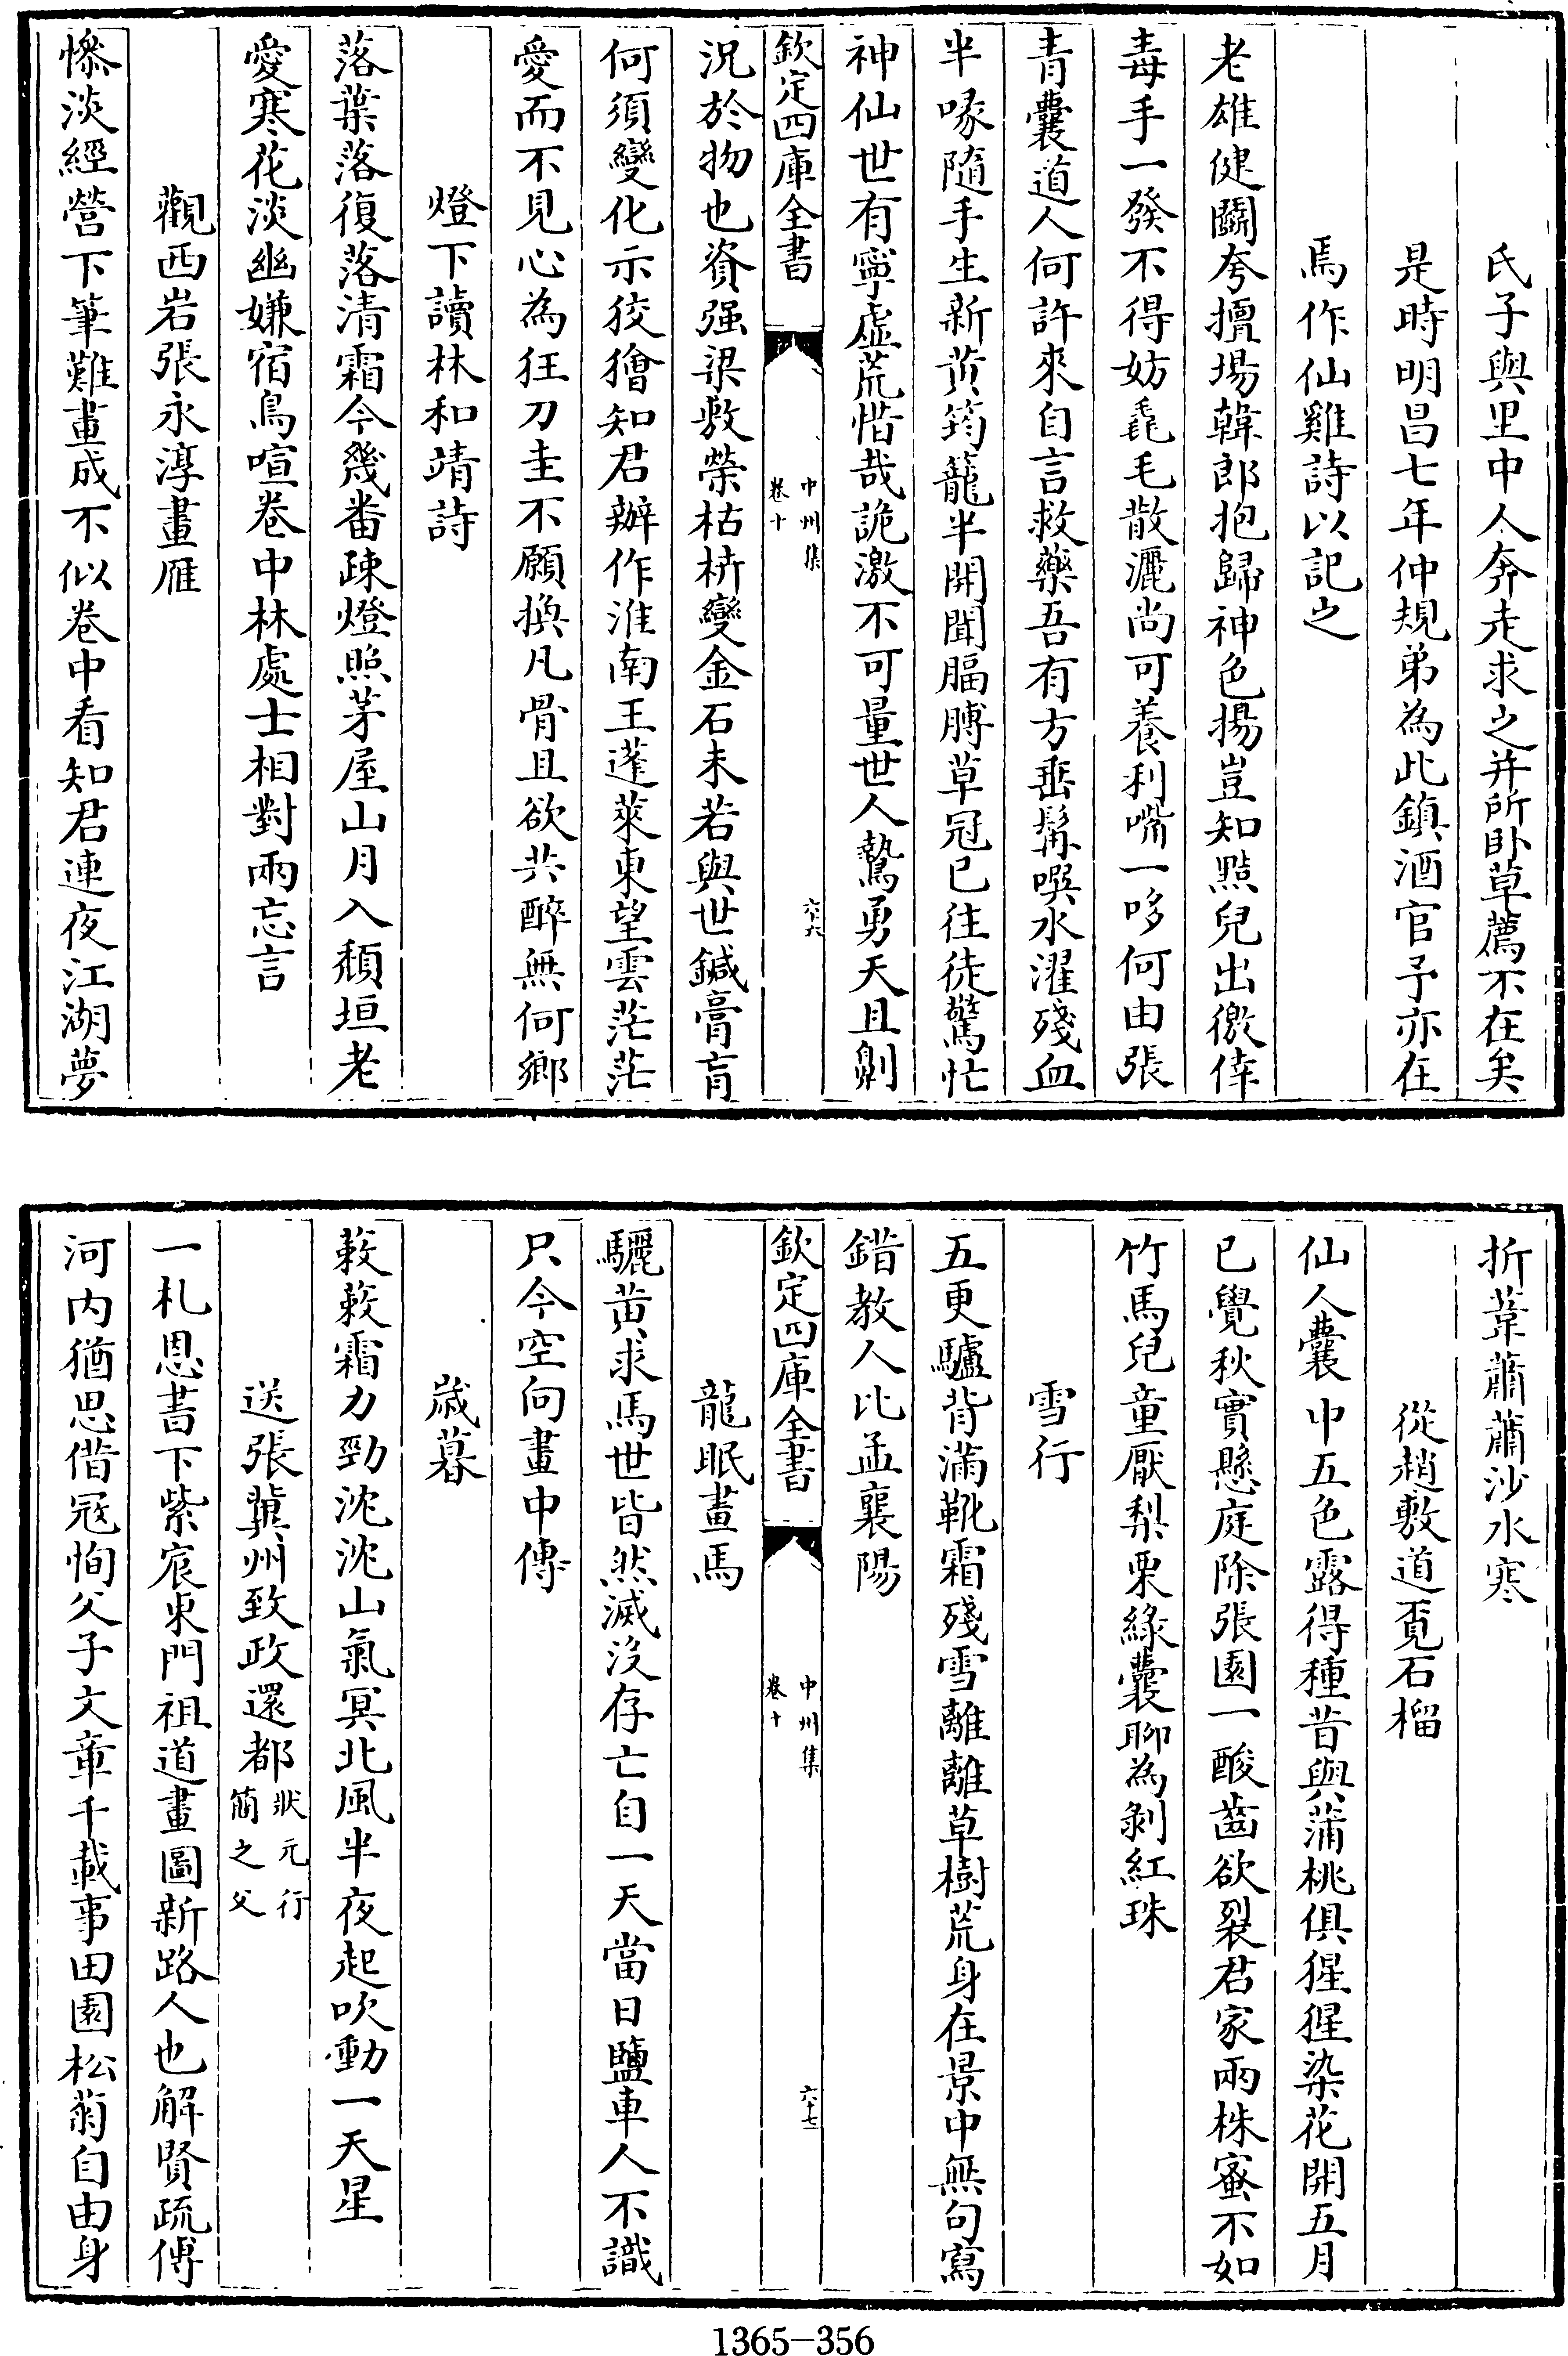 氏子與里中人奔走求之并所卧草薦不在矣
是時明昌七年仲規弟為此鎮酒官予亦在
焉作仙雞詩以記之
老雄健鬭夸擅場韓郎抱歸神色揚豈知黠兒出徼倖
毒手一發不得妨毳毛散灑尚可養利嘴一哆何由張
青囊道人何許來自言救藥吾有方垂髯噀水濯殘血
半喙隨手生新黄筠籠半開聞膈膊草冠已往徒驚忙
神仙世有寧虛荒惜哉詭激不可量世人鷙勇天且劓
欽定四庫全書
中州集
卷十
六十六
況於物也資强梁敷榮枯枿變金石未若與世鍼膏肓
何須變化示狡獪知君辦作淮南王蓬萊東望雲茫茫
愛而不見心為狂刀圭不願換凡骨且欲共醉無何鄉
燈下讀林和靖詩
落葉落復落清霜今幾番疎燈照茅屋山月入頽垣老
愛寒花淡幽嫌宿鳥喧卷中林處士相對兩忘言
觀西岩張永淳畫雁
慘淡經營下筆難畫成不似卷中看知君連夜江湖夢
折葦蕭蕭沙水寒
從趙敷道覓石榴
仙人囊中五色露得種昔與蒲桃俱猩猩染花開五月
已覺秋實懸庭除張園一酸齒欲裂君家兩株蜜不如
竹馬兒童厭梨栗綠囊聊為剝紅珠
雪行
五更驢背滿靴霜殘雪離離草樹荒身在景中無句寫
錯教人比孟襄陽
欽定四庫全書
中州集
卷十
六十七
龍眠畫馬
驪黄求馬世皆然滅沒存亡自一天當日鹽車人不識
只今空向畫中傳
歲暮
蔌蔌霜力勁沈沈山氣冥北風半夜起吹動一天星
送張冀州致政還都狀元行簡之父
一札恩書下紫宸東門祖道畫圖新路人也解賢疏傅
河内猶思借冦恂父子文章千載事田園松菊自由身
1365-356